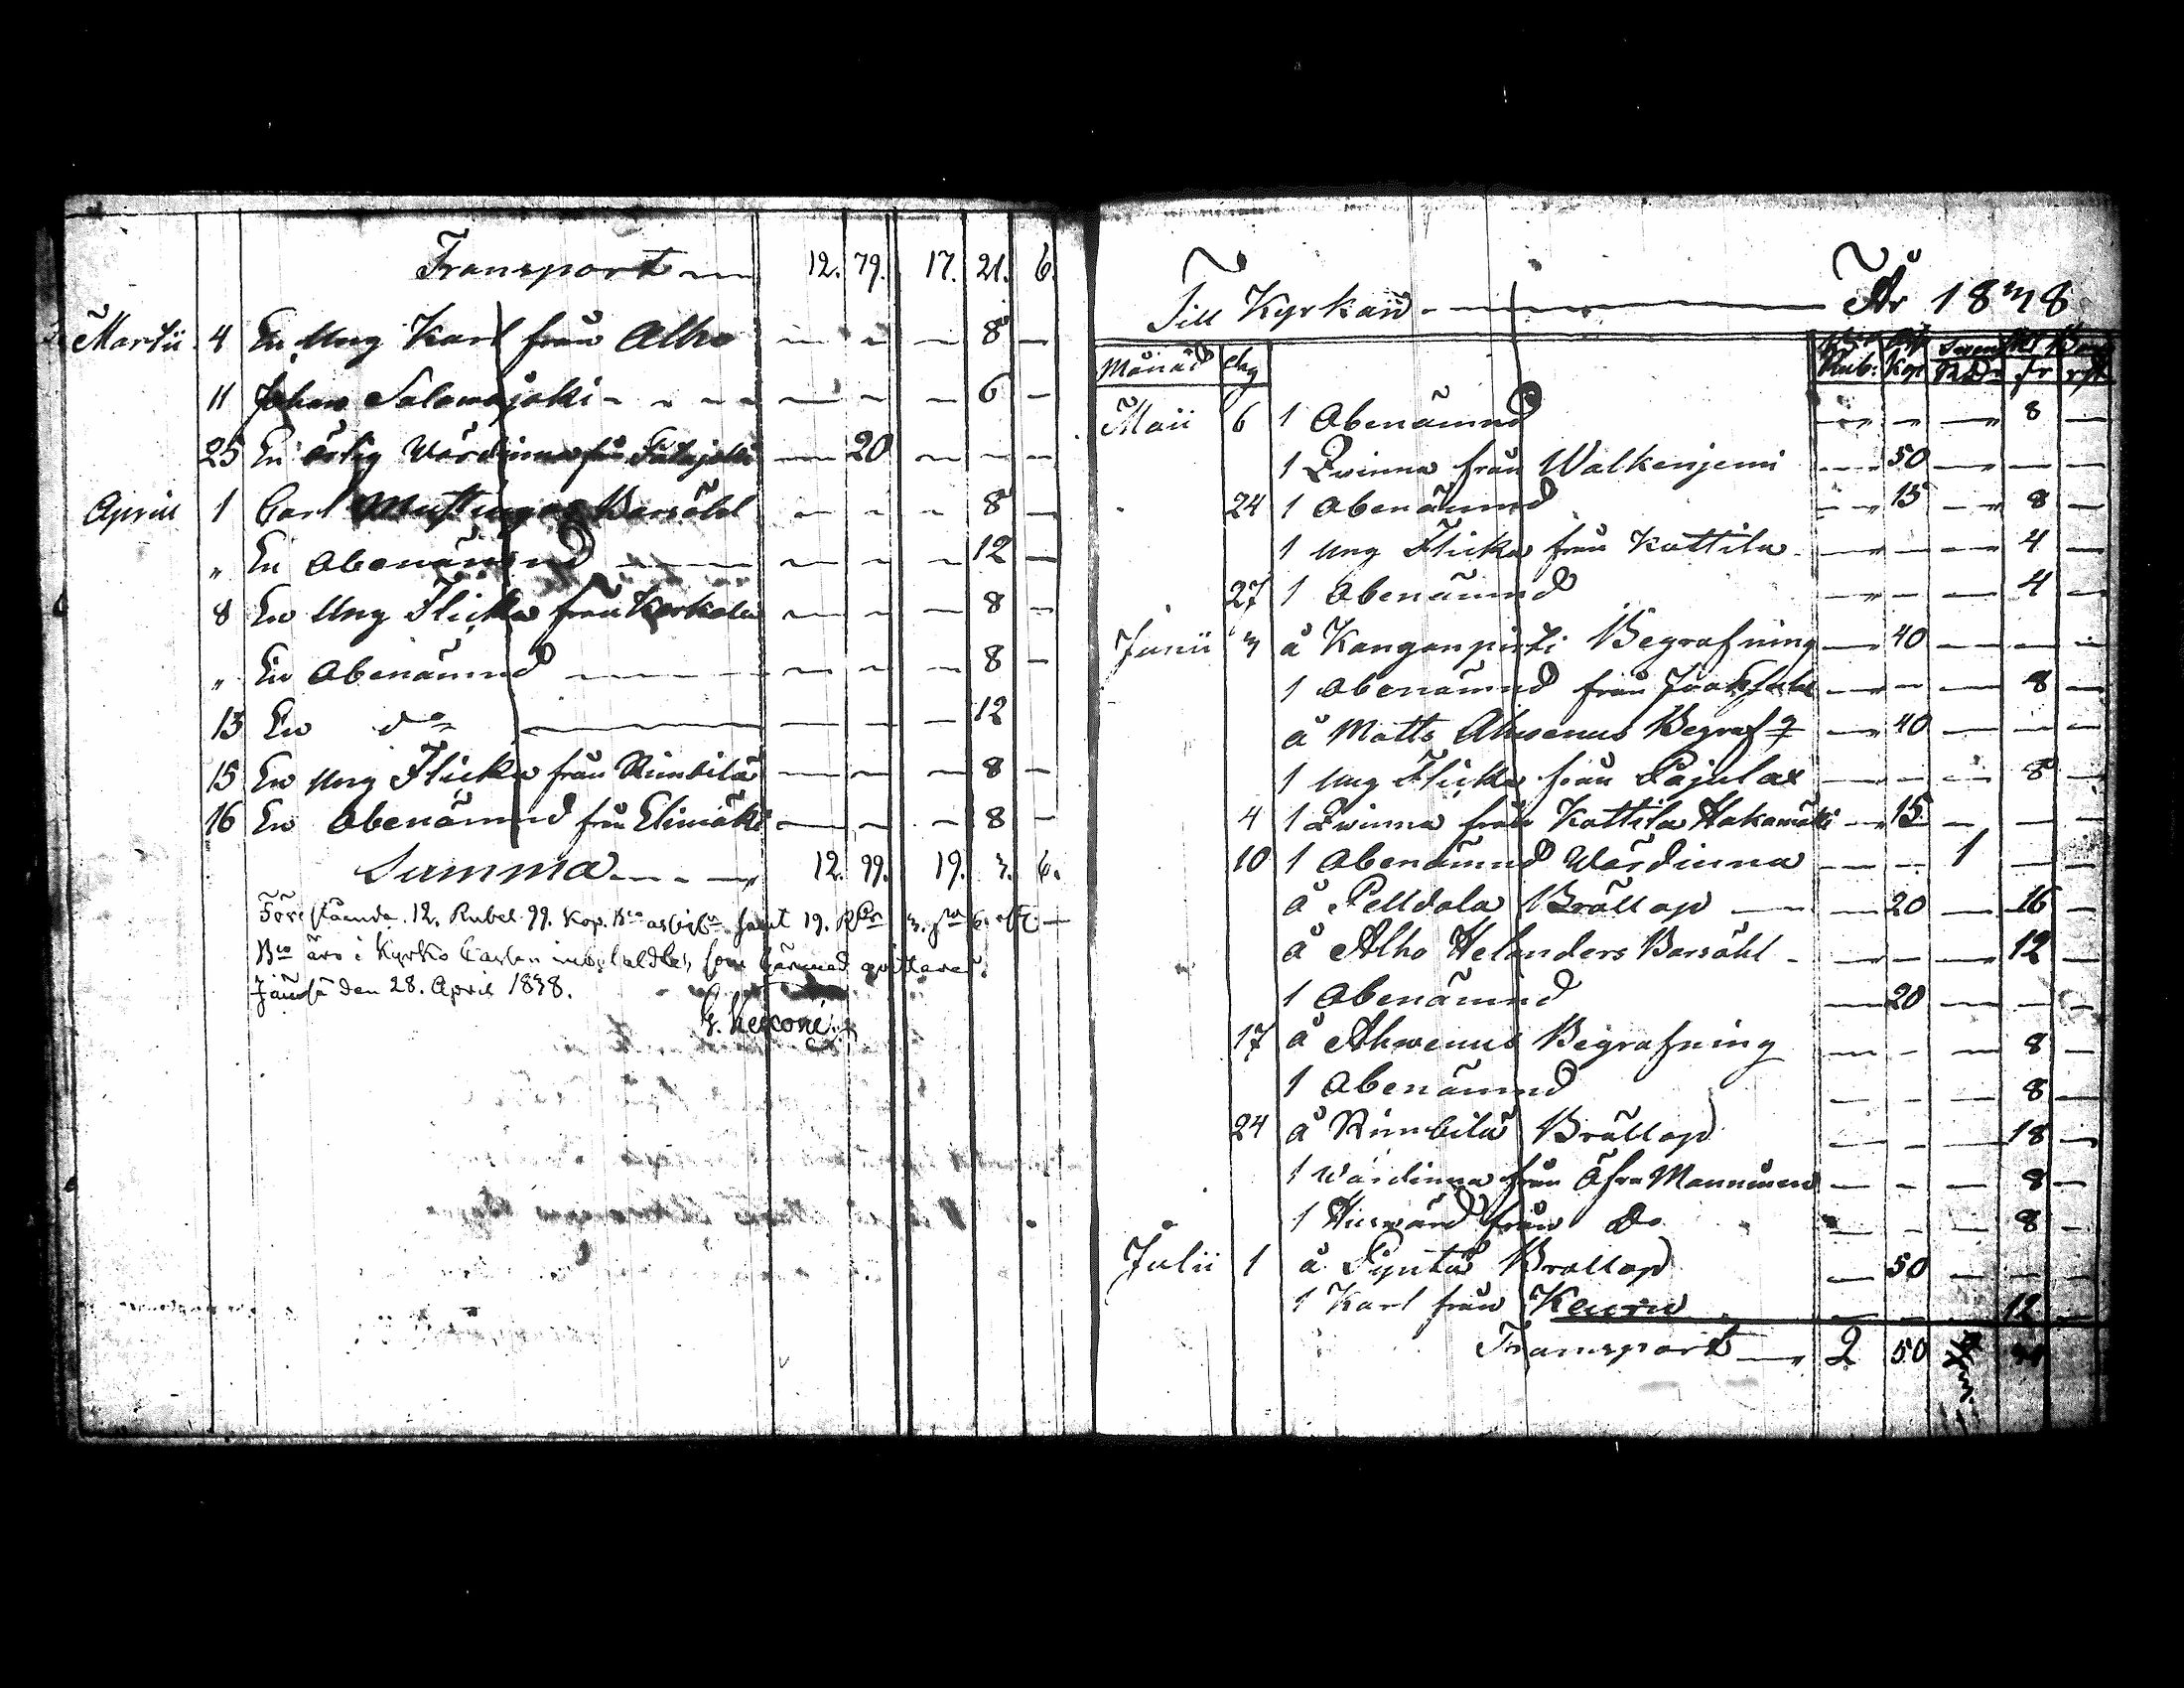 Transport 12. 79. 17. 21. 6.
Martii 4 En Ung Karl från Alho — — — 8 —
11 Johan Salomajoki — — — 6 —
25 En ärlig Wärdinna från — 20 — — —
Aprill 1 Carl Barsöhl — — — 8 —
" En Obenämnd — — — 12 —
8 En Ung Flicka från Kerkola — — — 8 —
" En Obenämnd — — — 8 —
13 En do — — — 12
15 En Ung Flicka från Rimbilä — — — 8 —
16 En Obenämnd från Elimäki — — — 8 —
Summa 12. 99. 19. 3. 6.
Förestående 12. Rubel 99. Kop. Bco samt 19. Rdr 3. 6. rst. —
Bco äro i Kyrko Cassan som härmed qvitteras.
Jämsä den 28. April 1838.
Till Kyrkan År 1838
Månad dag Rub: Kop Rdr sr rst
Maii 6 1 Obenämnd — — — 8 —
1 Qvinna från Walkenjemi — 50 — — —
24 1 Obenämnd — 15 — 8 —
1 Ung Flicka från Kottila — — — 4 —
27 1 Obenämnd — — — 4 —
Junii 3 å Kanganpirti Begrafning — 40 — — —
1 Obenämnd från — — — 8 —
å Matts Ahwenus Begrafg — 40 — — —
1 Ung Flicka från Pajulax — — — 8 —
4 1 Qvinna från Kottila Hakamäki — 15 — — —
10 1 Obenämnd Wärdinna — — 1 — —
å Pelldola Bröllop — 20 — 16 —
å Alho Helanders Barsöhl — — — 12 —
1 Obenämnd — 20 — — —
17 å Ahwenus Begrafning — — — 8 —
1 Obenämnd — — — 8 —
24 å Rimbilä Bröllop — — — 18 —
1 Wärdinna från Öfra Manninen — — — 8 —
1 Huswärd från Do — — — 8 —
Julii 1 å Pyntä Bröllop — 50 — — —
1 Karl från Keuru — — — 12 —
Transport 2 50